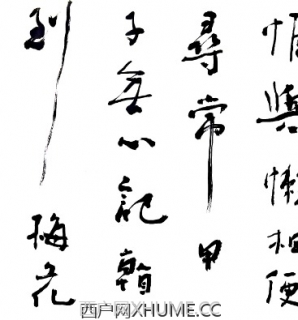 與懶相便
尋常甲
子無心記
到梅花
西户网XHUME.CC